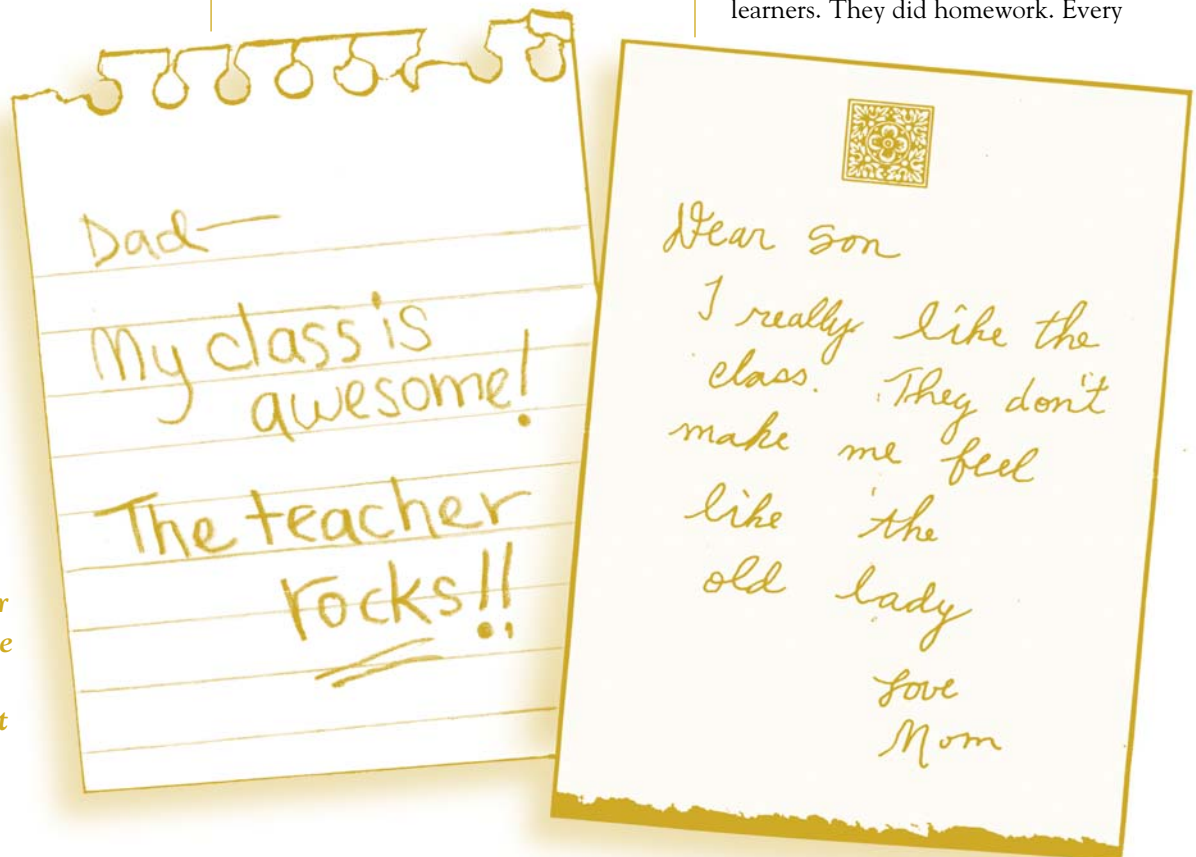 learners. They did homework. Every
Dad—
My class is
awesome!
The teacher
rocks!!
Dear Son
I really like the
class. They don't
make me feel
like the
old lady
Love
Mom